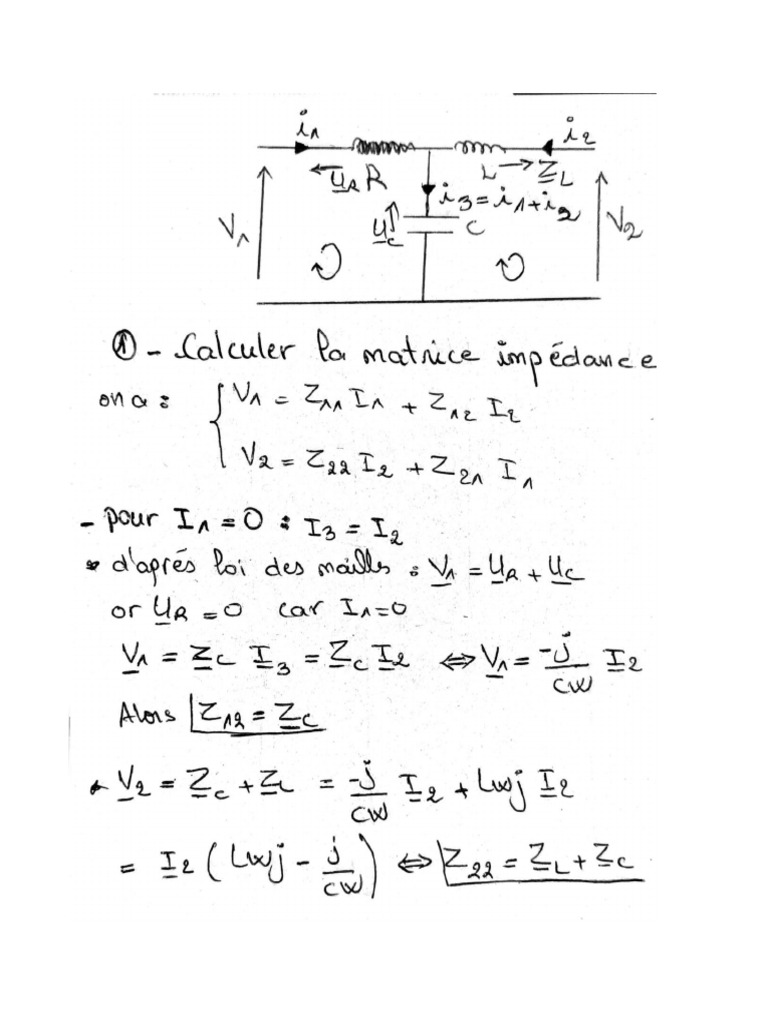 i1
i2
UR R
L
ZL
i3 = i1 + i2
V1
Uc
C
V2
① - Calculer la matrice impédance
on a : { V1 = Z11 I1 + Z12 I2
V2 = Z22 I2 + Z21 I1
- pour I1 = 0 : I3 = I2
* d'aprés loi des mailles : V1 = UR + UC
or UR = 0 car I1 = 0
V1 = ZC I3 = ZC I2 ⇔ V1 = -j/CW I2
Alors Z12 = ZC
* V2 = ZC + ZL = -j/CW I2 + Lwj I2
= I2 ( Lwj - j/CW ) ⇔ Z22 = ZL + ZC